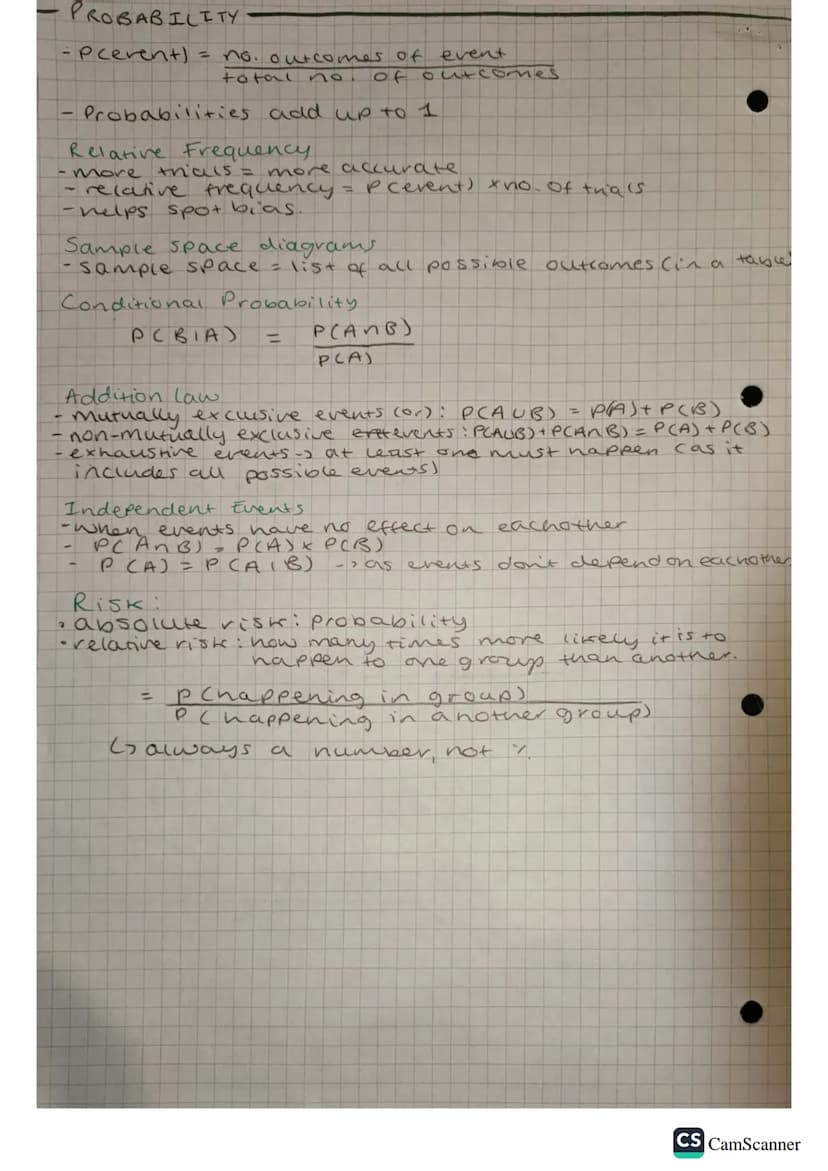 PROBABILITY
- P(event) = no. outcomes of event
total no. of outcomes
- Probabilities add up to 1
Relative Frequency
- more trials = more accurate
- relative frequency = P(event) × no. of trials
- helps spot bias.
Sample space diagrams
- sample space = list of all possible outcomes (in a table)
Conditional Probability
P(B|A) = P(A∩B)
P(A)
Addition law
- mutually exclusive events (or): P(A∪B) = P(A)+ P(B)
- non-mutually exclusive events: P(A∪B)+P(A∩B) = P(A) + P(B)
- exhaustive events -> at least one must happen (as it
includes all possible events)
Independent Events
- when events have no effect on eachother
- P(A∩B) = P(A) × P(B)
- P(A) = P(A|B) -> as events don't depend on eachother
Risk:
• absolute risk: probability
• relative risk: how many times more likely it is to
happen to one group than another.
= P(happening in group)
P(happening in another group)
↳ always a number, not %
CS CamScanner